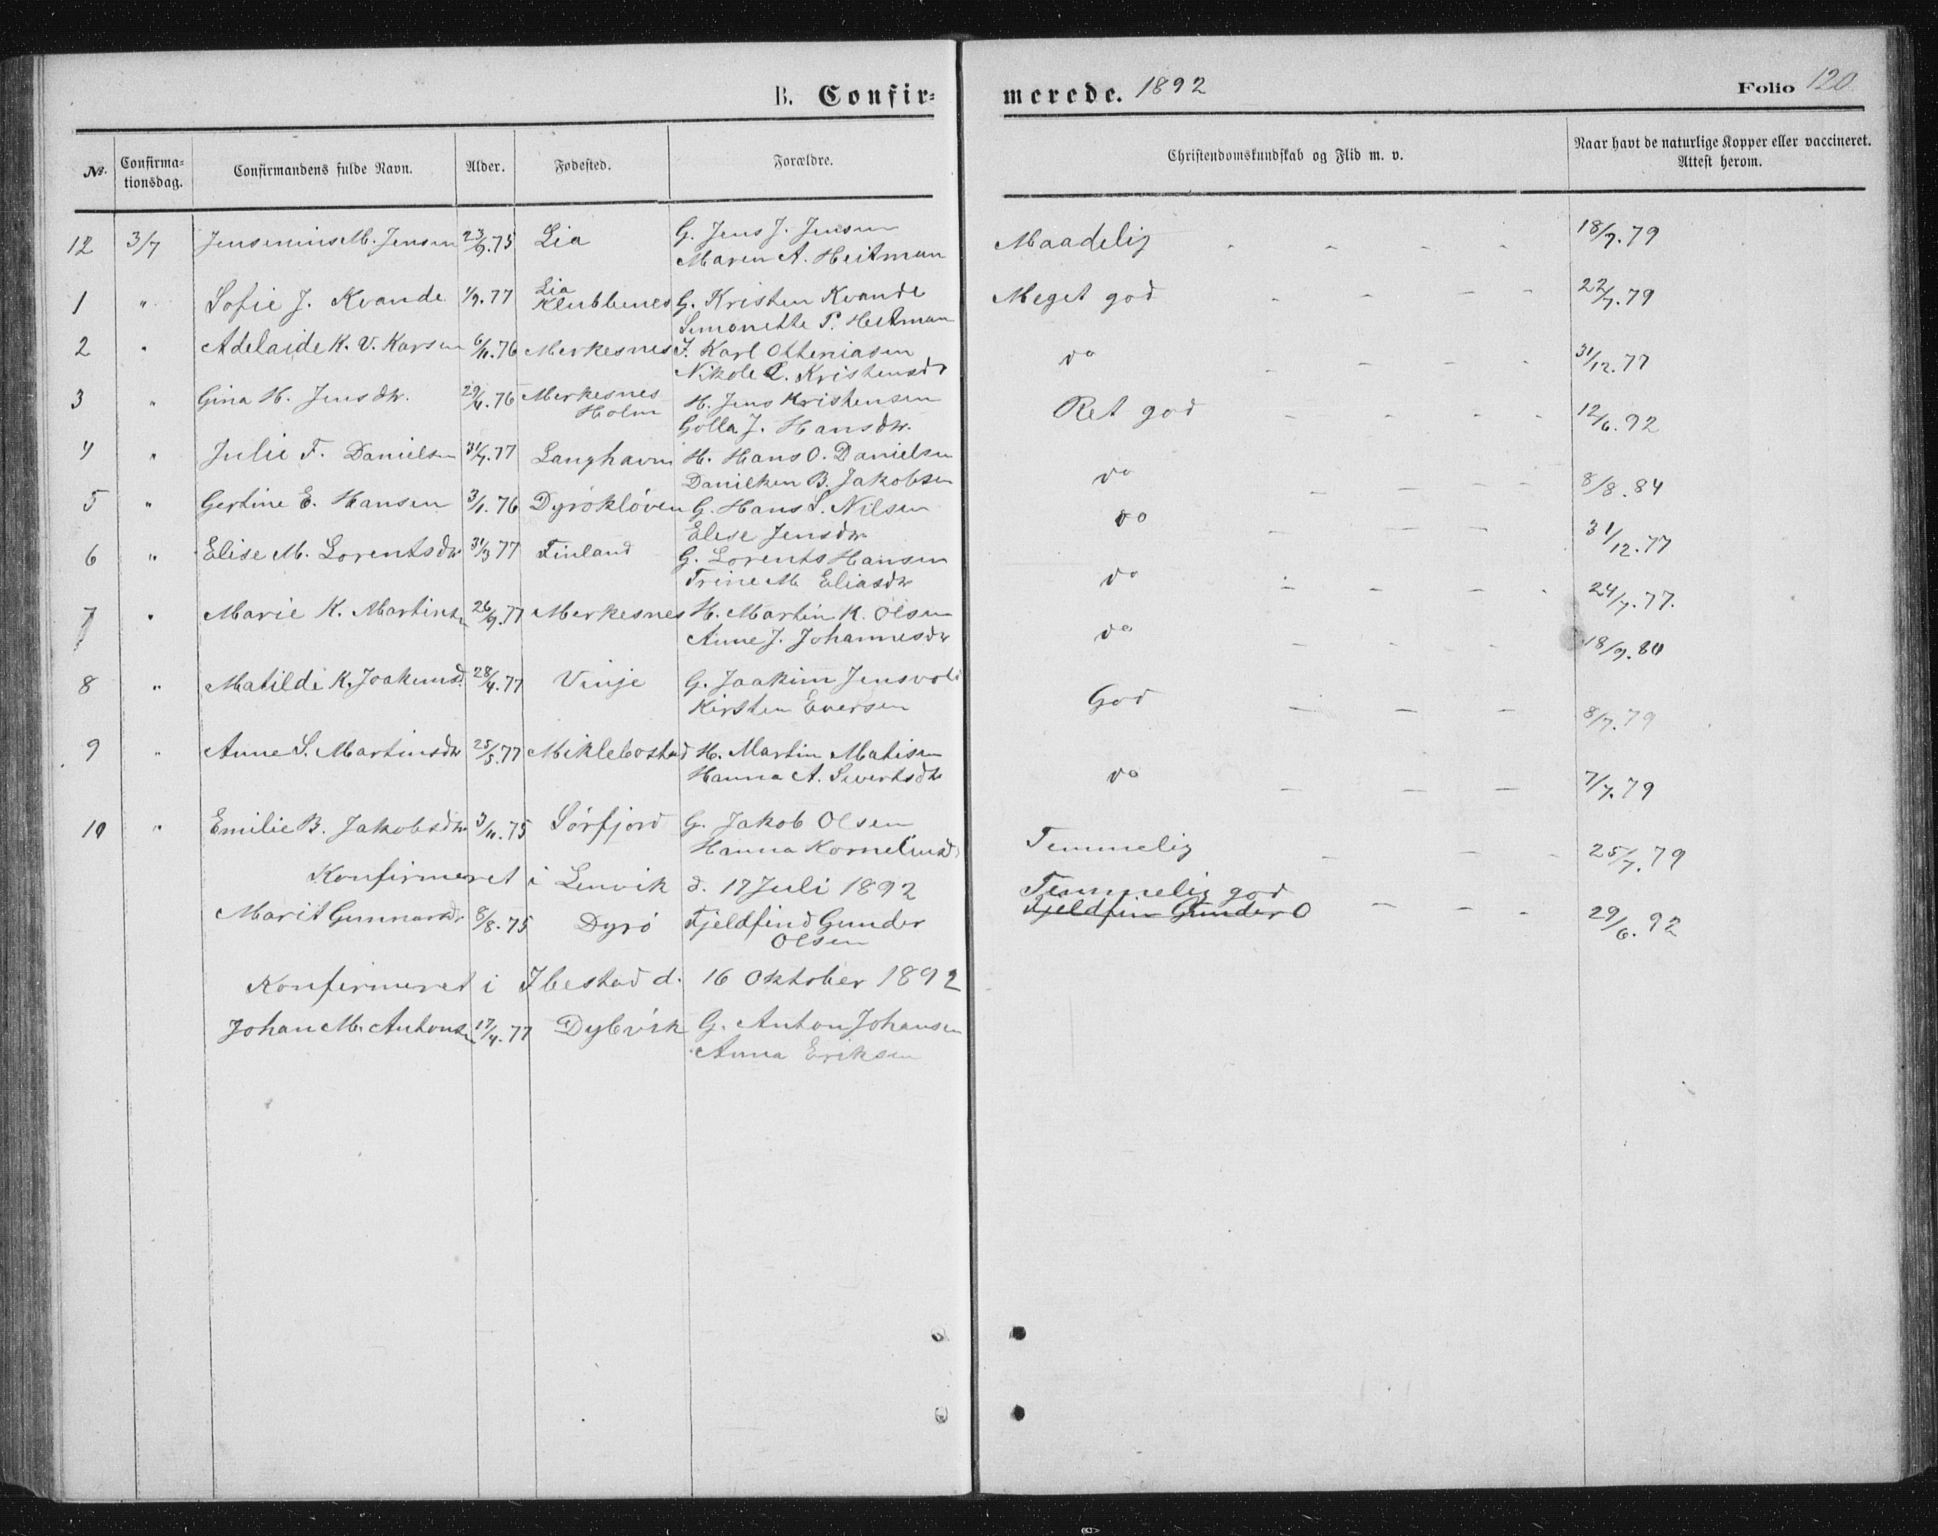 B. Confir= merede. 1892 Folio 120.
№. Confirma-tionsdag. Confirmandens fulde Navn. Alder. Fødested. Forældre. Christendomskundskab og Flid m. v. Naar havt de naturlige Kopper eller vaccineret. Attest herom.
12 3/7 Jensenius M. Jensen 23/9.75 Lia G. Jens J. Jensen Maadelig - - - - 18/7.79
Maren A. Heitman
1 " Sofie J. Kvande 1/9.77 Lia Klubbenes G. Kristen Kvande Meget god - - - - 22/7.79
Simonette P. Heitman
2 " Adelaide K. V. Karsen 6/11.76 Merkesnes I. Karl Otteniasen do - - - - 31/12.77
Nikole L. Kristensdr
3 " Gina H. Jensdtr. 29/6.76 Merkesnes Holm H. Jens Kristensen Ret god - - - - 12/6.92
Golla J. Hansdtr.
4 " Julie F. Danielsen 31/7.77 Langhavn H. Hans O. Danielsen do - - - - 8/8.84
Danikken B. Jakobsen
5 " Gertine E. Hansen 3/1.76 Dyrøkløven G. Hans S. Nilsen do - - - 31/12.77
Elese Jensdtr
6 " Elise M. Lorentsdtr 31/3 77 Finland G. Lorents Hansen do - - - - 24/7.77.
Trine M Eliasdtr
7 " Marie K. Martinsen 26/9.77 Merkesnes H. Martin K. Olsen do - - - - 18/9.80
Anne J. Johannesdtr
8 " Matilde K. Joakimsd. 28/4.77 Vinje G. Joakim Jensvold God - - - 8/7.79
Kirsten Eversen
9 " Anne S. Martinsdtr 25/5.77 Miklebostad H. Martin Matisen do - - - 7/7.79
Hanna A. Sivertsdtr
10 " Emilie B. Jakobsdtr 3/11.75 Sørfjord G. Jakob Olsen Temmelig - - - 25/7.79
Hanna Korneliusd
Konfirmeret i Lenvik d. 17 Juli 1892
Marit Gunnarsdr 8/8.75 Dyrø Fjeldfind Gunder Olsen Temmelig god - - - 29/6.92
Fjeldfin Gunder O
Konfirmeret i Ibestad d. 16 Oktober 1892
Johan M. Antonsen 17/4.77 Dybvik G. Anton Johansen
Anna Eriksen